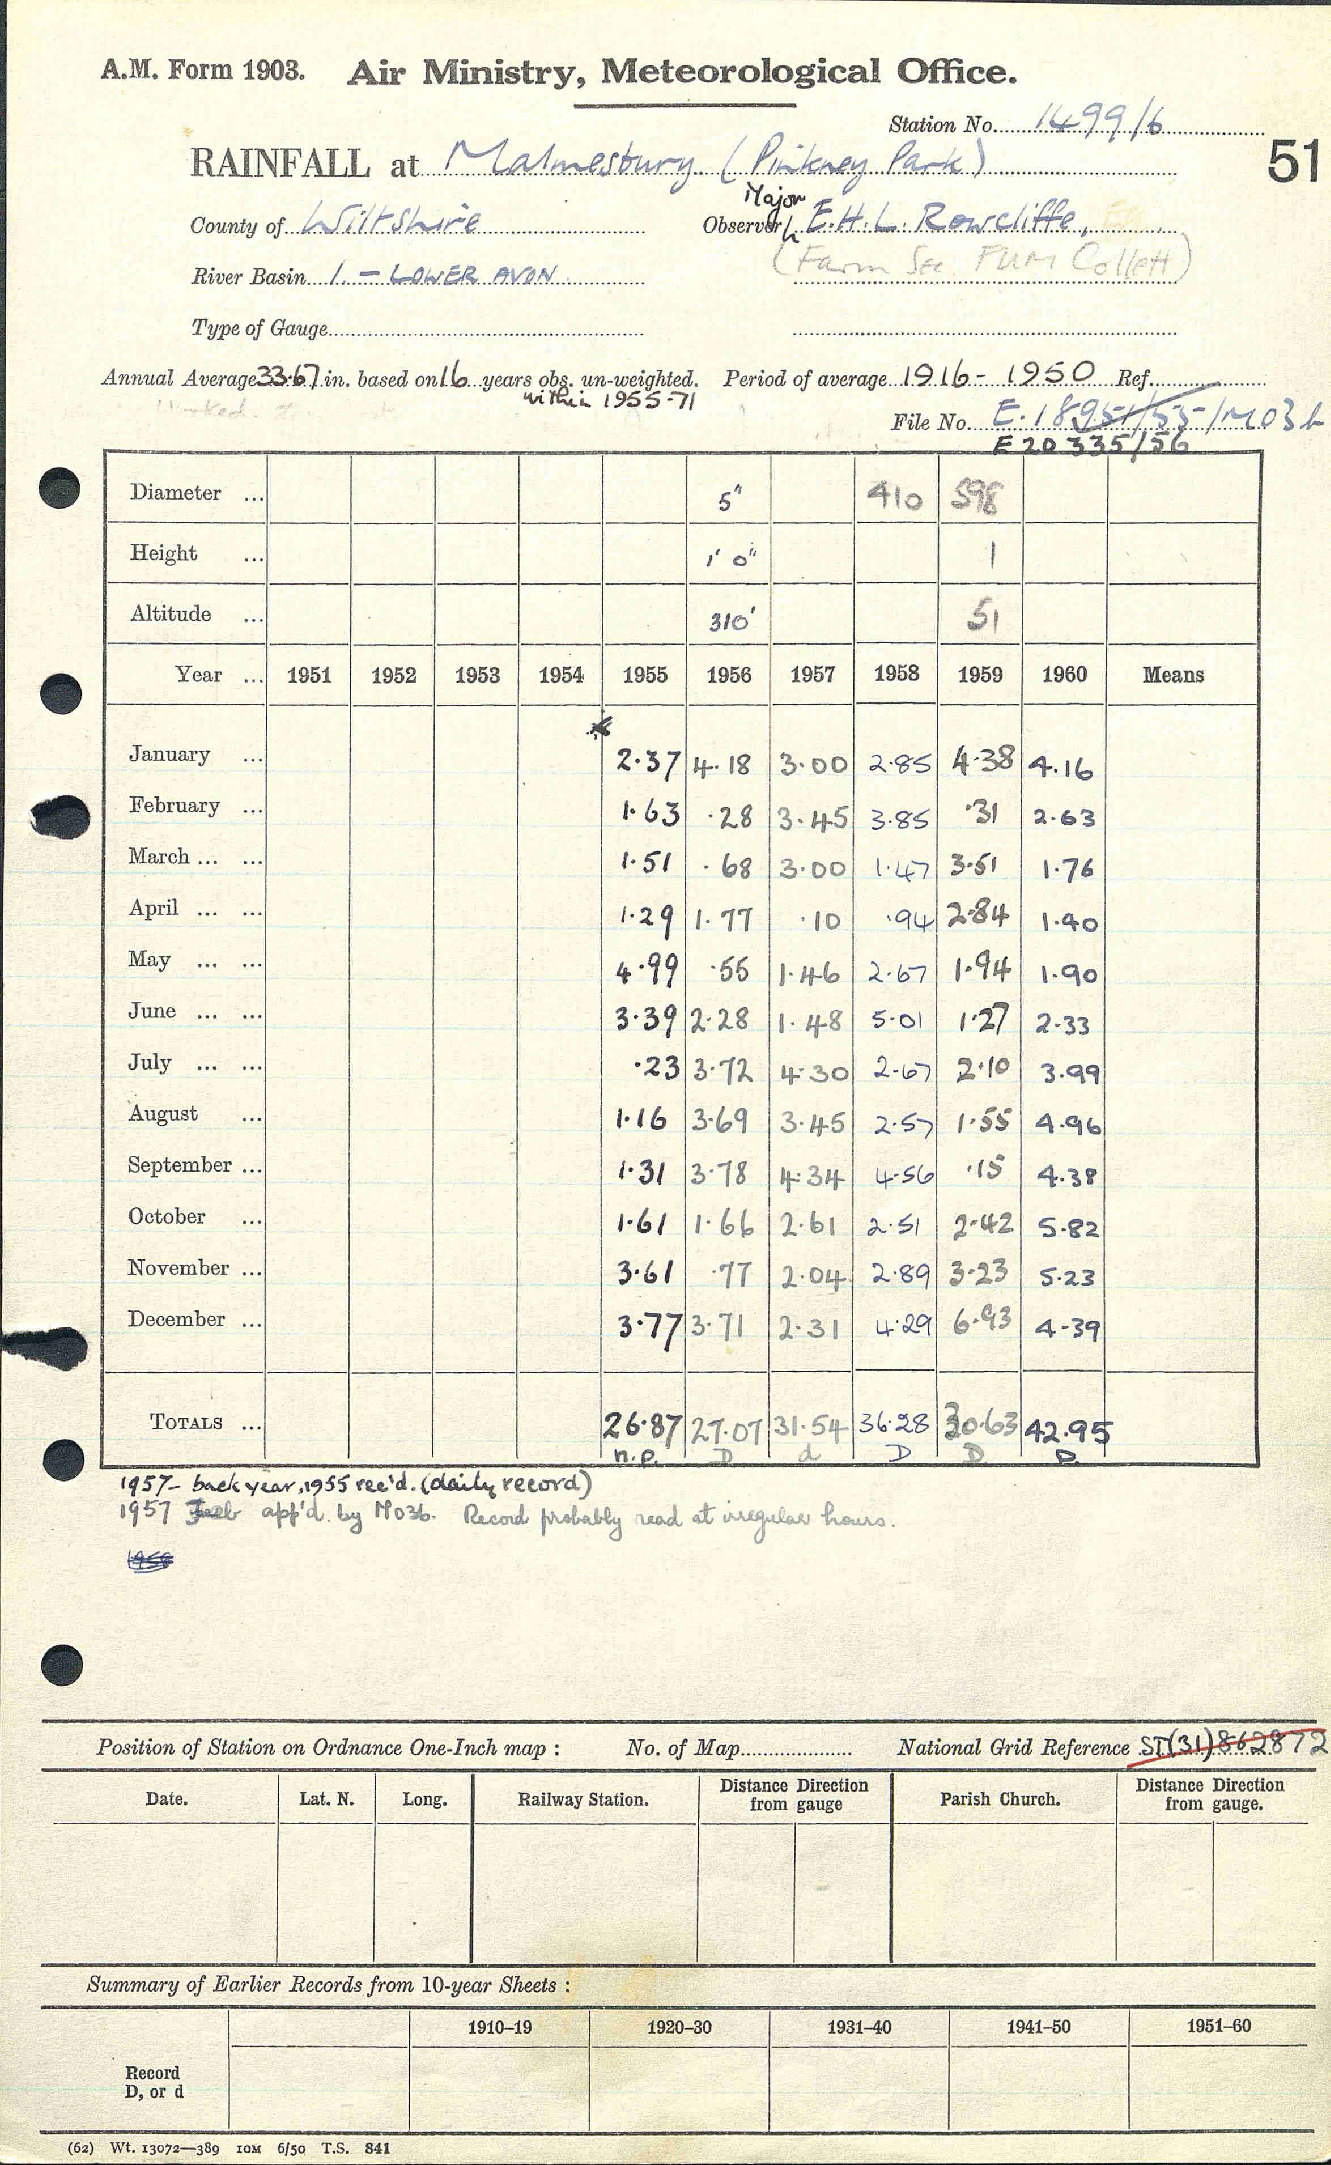 A.M. Form 1903. Air Ministry, Meteorological Office.
Station No. 1499/6
51
RAINFALL at Malmesbury (Pinkney Park)
Major
County of Wiltshire Observer E.H.L. Rowcliffe,
(Farm Sec. Collett)
River Basin 1. - LOWER AVON
Type of Gauge
Annual Average 33.67 in. based on 16 years obs. un-weighted. Period of average 1916 - 1950 Ref.
within 1955-71
File No. E.18951/55/MO3b
E 20335/56
Diameter ... 5" 410 598
Height ... 1' 0" 1
Altitude ... 310' 51
Year ... 1951 1952 1953 1954 1955 1956 1957 1958 1959 1960 Means
January ... 2.37 4.18 3.00 2.85 4.38 4.16
February ... 1.63 .28 3.45 3.85 .31 2.63
March ... ... 1.51 .68 3.00 1.47 3.51 1.76
April ... ... 1.29 1.77 .10 .94 2.84 1.40
May ... ... 4.99 .55 1.46 2.67 1.94 1.90
June ... ... 3.39 2.28 1.48 5.01 1.27 2.33
July ... ... .23 3.72 4.30 2.67 2.10 3.99
August ... 1.16 3.69 3.45 2.57 1.55 4.96
September ... 1.31 3.78 4.34 4.56 .15 4.38
October ... 1.61 1.66 2.61 2.51 2.42 5.82
November ... 3.61 .77 2.04 2.89 3.23 5.23
December ... 3.77 3.71 2.31 4.29 6.93 4.39
TOTALS ... 26.87 27.07 31.54 36.28 30.63 42.95
n.p. D d D D D
1957 - back year, 1955 rec'd. (daily record)
1957 Feb app'd. by MO3b. Record probably read at irregular hours.
1958
Position of Station on Ordnance One-Inch map : No. of Map National Grid Reference ST(31)862872
Date. Lat. N. Long. Railway Station. Distance Direction from gauge Parish Church. Distance Direction from gauge.
Summary of Earlier Records from 10-year Sheets :
1910–19 1920–30 1931–40 1941–50 1951–60
Record
D, or d
(62) Wt. 13072—389 10M 6/50 T.S. 841